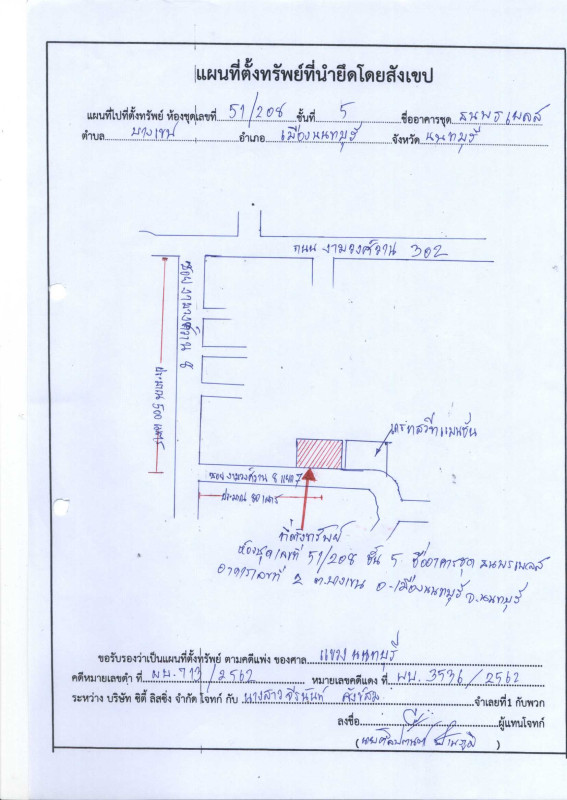 แผนที่ตั้งทรัพย์ที่นำยึดโดยสังเขป
แผนที่ไปที่ตั้งทรัพย์ ห้องชุดเลขที่ 51/208 ชั้นที่ 5 ชื่ออาคารชุด ธนพรเพลส
ตำบล บางเขน อำเภอ เมืองนนทบุรี จังหวัด นนทบุรี
ถนน งามวงศ์วาน 302
ซอย งามวงศ์วาน 8
ประมาณ 500 เมตร
แมนชั่น
ซอย งามวงศ์วาน 8 แยก 7
ประมาณ 80 เมตร
ที่ตั้งทรัพย์
ห้องชุดเลขที่ 51/208 ชั้น 5 ชื่ออาคารชุด ธนพรเพลส
อาคารเลขที่ 2 ต.บางเขน อ.เมืองนนทบุรี จ.นนทบุรี
ขอรับรองว่าเป็นแผนที่ตั้งทรัพย์ ตามคดีแพ่ง ของศาล แขวงนนทบุรี
คดีหมายเลขดำ ที่ ผบ.713/2562 หมายเลขคดีแดง ที่ ผบ.3536/2562
ระหว่าง บริษัท ซิตี้ ลิสซิ่ง จำกัด โจทก์ กับ นางสาวจีรนันท์ จำเลยที่1 กับพวก
ลงชื่อ ผู้แทนโจทก์